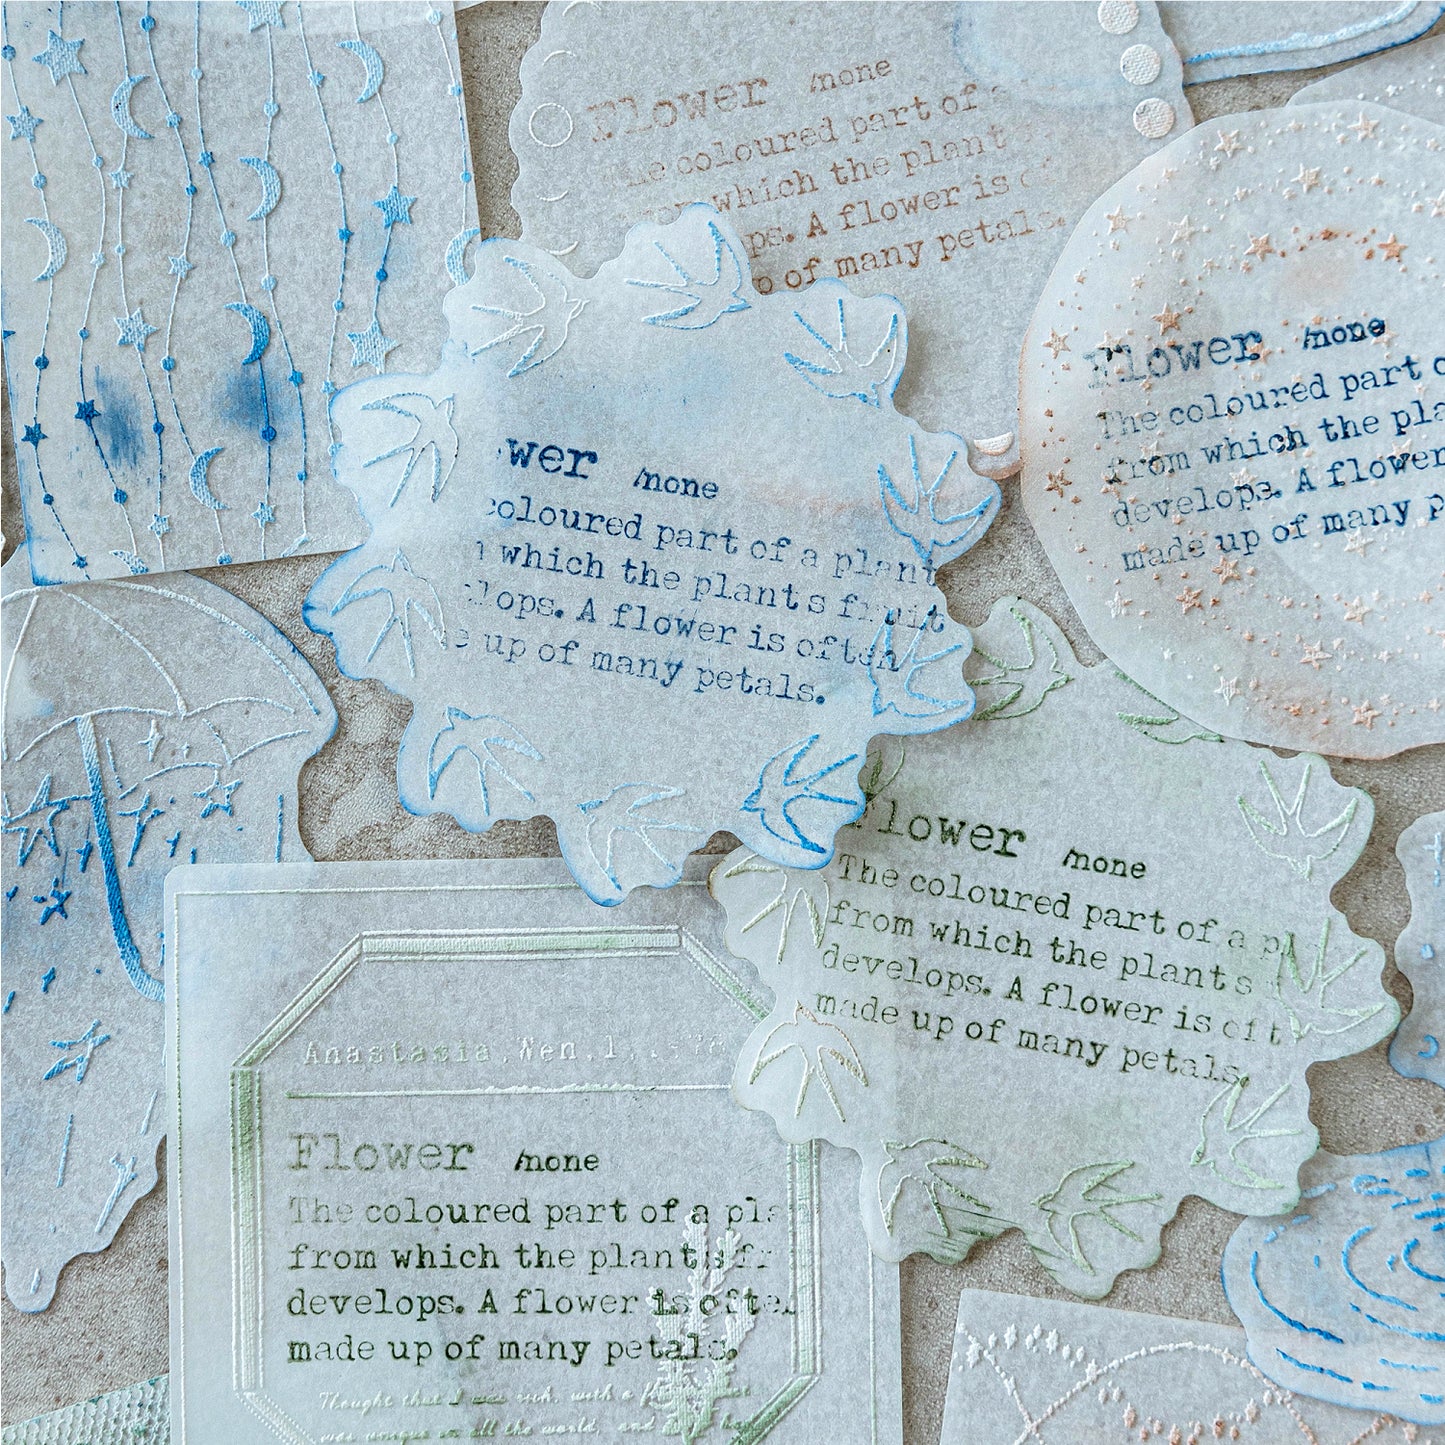 Flower /none
The coloured part of a
from which the plant
ps. A flower is of
p of many petals.
Flower /none
The coloured part o
from which the pla
develops. A flower
made up of many p
wer /none
coloured part of a plant
which the plants fruit
lops. A flower is often
e up of many petals.
Flower /none
The coloured part of a pl
from which the plants
develops. A flower is oft
made up of many petals.
Anastasia Wen.l
Flower /none
The coloured part of a pla
from which the plants fr
develops. A flower is often
made up of many petals.
Thought that I was rich, with a
was unique in all the world, and